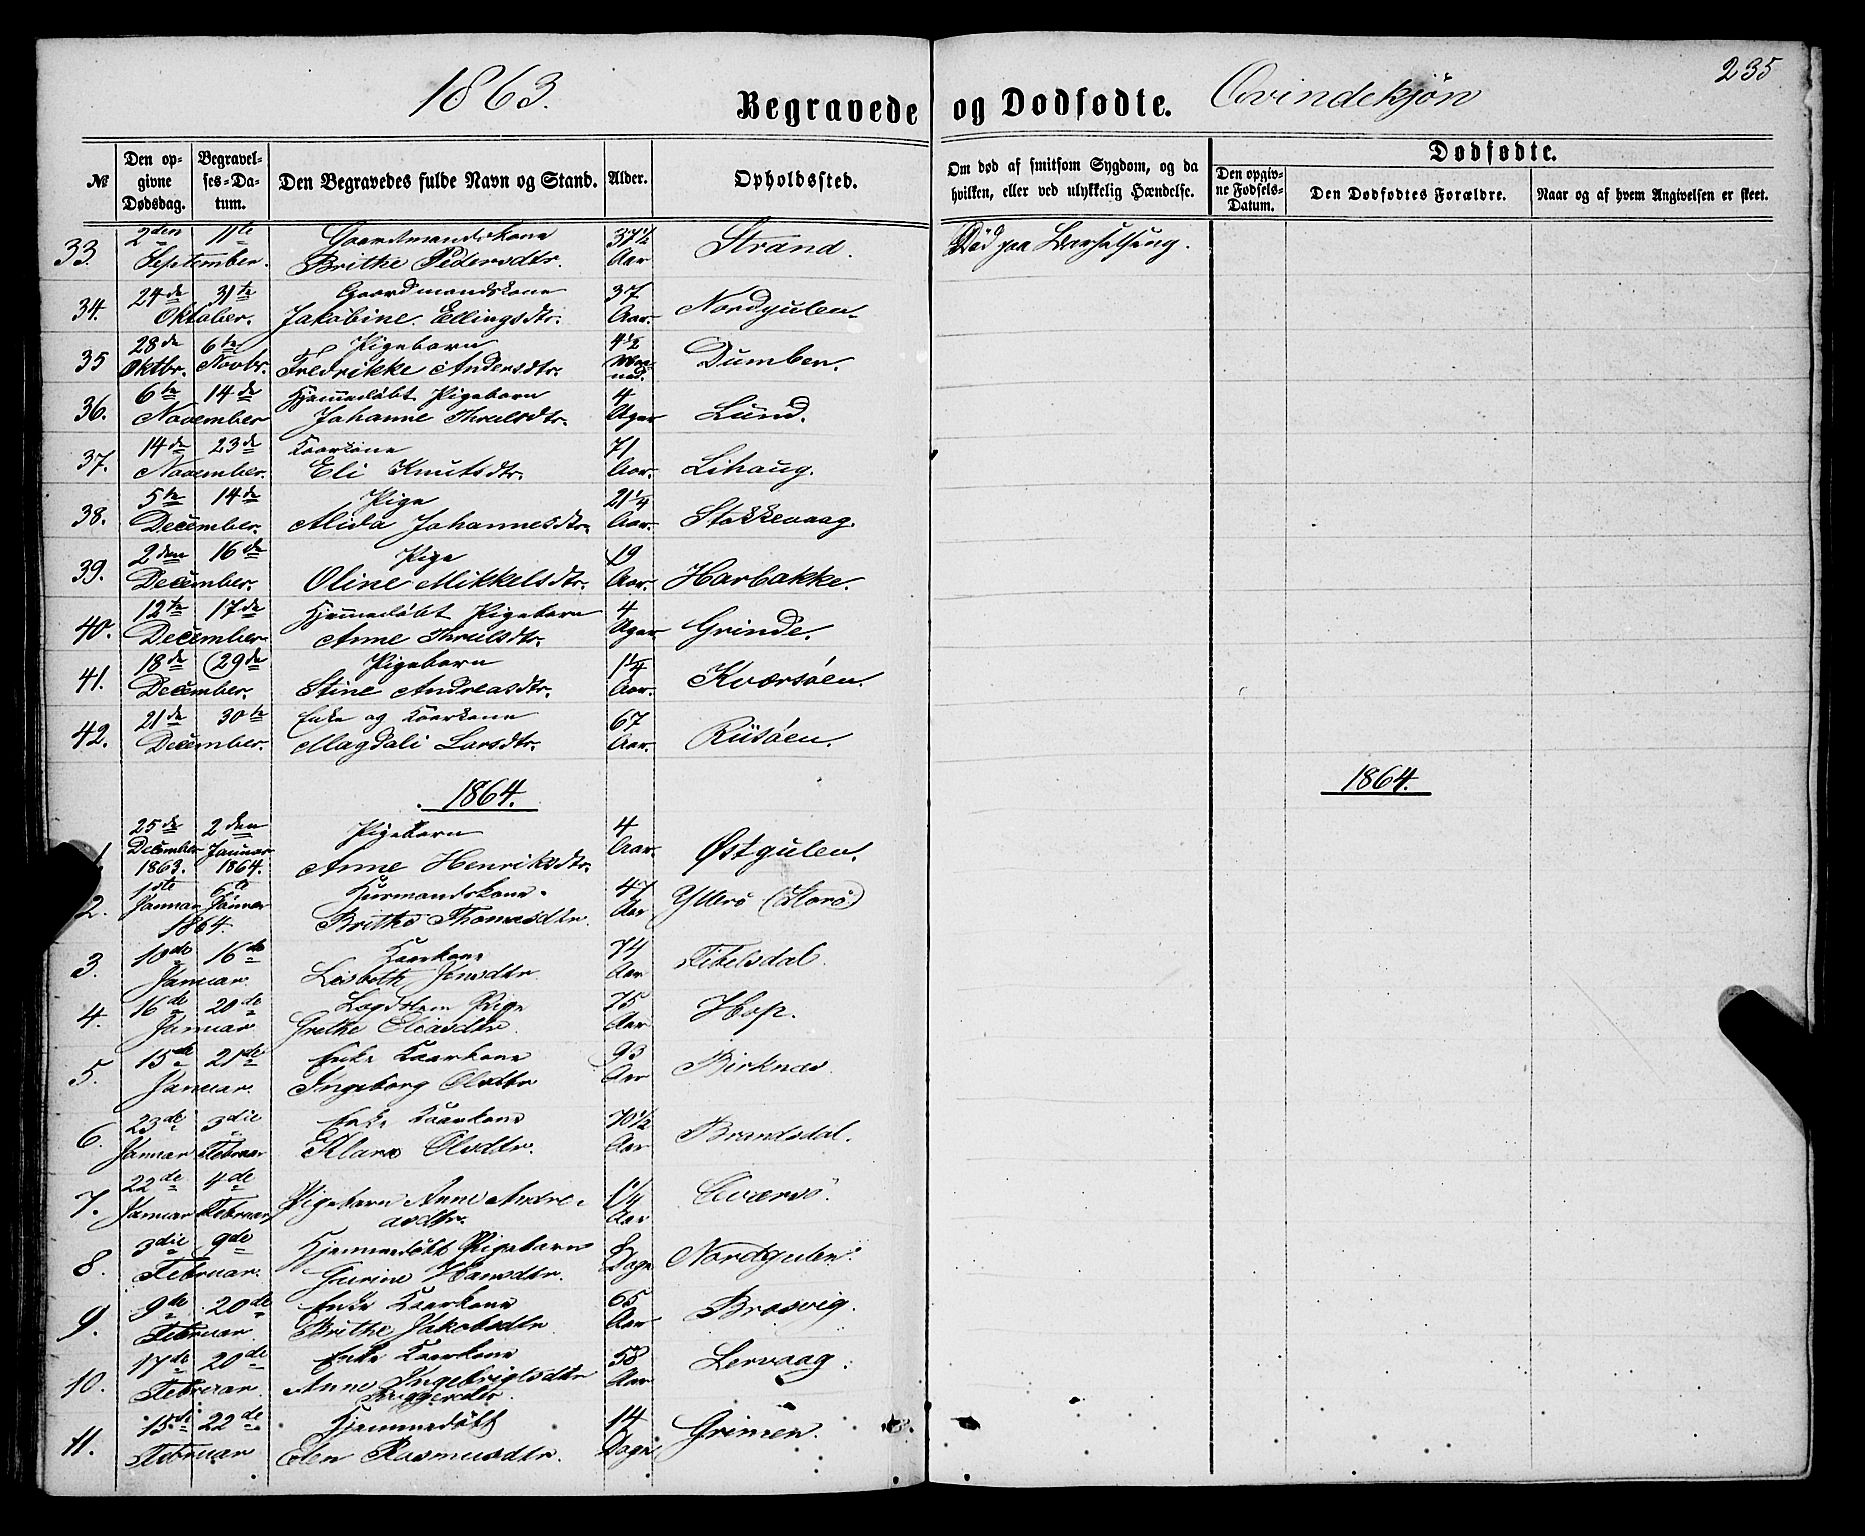 1863.
Begravede og Dødfødte.
Qvindekjøn
235
№
Den opgivne Dødsdag.
Begravelses-Datum.
Den Begravedes fulde Navn og Stand.
Alder.
Opholdssted.
Om død af smitsom Sygdom, og da hvilken, eller ved ulykkelig Hændelse.
Dødfødte.
Den opgivne Fødsels-Datum.
Den Dødfødtes Forældre.
Naar og af hvem Angivelsen er skeet.
33. 2den 11te Gaardmandskone 37½ Strand. Død paa
September. Brithe Pedersdtr. Aar
34. 24de 31te Gaardmandskone 37 Nordgulen.
Oktober. Jakobine Ellingsdtr. Aar.
35 28de 6te Pigebarn 4½ Dumben.
Oktbr. Novbr. Fredrikke Andersdtr. Maaned.
36. 6te 14de Hjemmedøbt Pigebarn 4 Lund.
November Johanne Thruls dtr. Uger
37. 14de 23de Kaarkone 71 Lihaug.
November. Eli Knutsdtr. Aar.
38. 5te 14de Pige 21¼ Stokkevaag.
December. Alida Johannesdtr. Aar.
39. 2den 16de Pige 19 Harbakke.
December. Oline Mikkelsdtr. Aar.
40. 12te 17de Hjemmedøbt Pigebarn 4 Grinde.
December. Anne Thrulsdtr. Uger
41. 18de 29de Pigebarn 1¼ Kværsøen.
December. Stine Andreasdtr. Aar.
42. 21de 30te Enke og Kaarkone 67 Riisøen.
December. Magdali Larsdtr. Aar.
1864.
1864.
1 25de 2den Pigebarn 4 Østgulen.
December Januar Aar.
1863. 1864. Anne Henriksdtr.
2. 1ste 6te Huusmandskone 47 Ytterø
Januar Januar Aar
1864. Brithe Thomasdtr.
3. 10de 16de Kaarkone 74
Januar. Lisbeth Jensdtr. Aar
4. 16de 20de Lægdslem Pige 75 Hop.
Januar Grethe Eliasdtr. Aar
5. 15de 21de Enke Kaarkone 93 Birknæs.
Januar. Ingeborg Olsdtr Aar
6. 23de 3die Enke Kaarkone 70½ Brandsdal.
Januar Februar Klara Olsdtr. Aar
7. 22de 4de Pigebarn Anne Andre- 1¼ Qværsø.
Januar Februar asdtr. Aar
8. 3die 9de Hjemmedøbt Pigebarn Nordgulen.
Februar. Gurine Hansdtr. Dage
9. 9de 20de Enke Kaarkone 65 Brosvig.
Februar. Brithe Jakobsdtr Aar
10. 17de 20de Enke Kaarkone 58 Lervaag.
Februar. Anne Ingebrigtsdtr Aar
11. 15de 22de Hjemmedøbt 14 Grinen.
Februar Elen Rasmusdtr. Dage